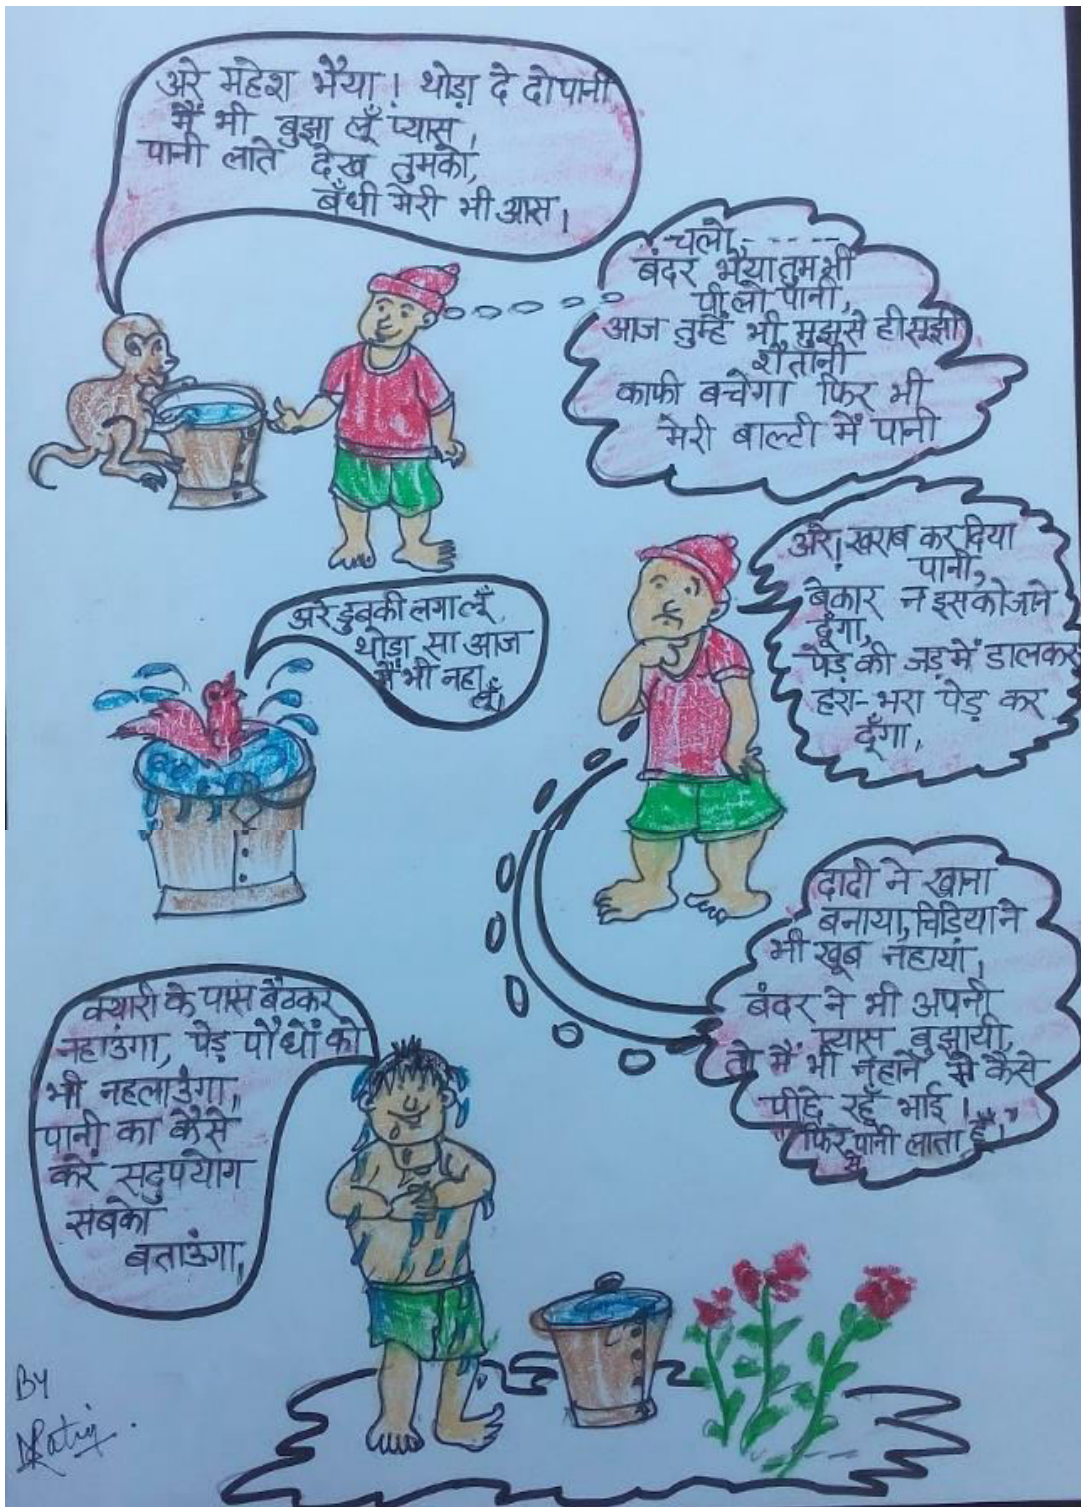 अरे महेश भैया! थोड़ा दे दो पानी
मैं भी बुझा लूँ प्यास,
पानी लाते देख तुमको,
बँधी मेरी भी आस।
चलो-----
बंदर भैया तुम भी
पी लो पानी,
आज तुम्हें भी मुझसे ही सूझी
शैतानी
काफी बचेगा फिर भी
मेरी बाल्टी में पानी
अरे! खराब कर दिया
पानी,
बेकार न इसको जाने
दूँगा,
पेड़ की जड़ में डालकर
हरा-भरा पेड़ कर
दूँगा,
अरे डुबकी लगा लूँ,
थोड़ा सा आज
मैं भी नहा
लूँ।
दादी ने खाना
बनाया, चिड़िया ने
भी खूब नहाया,
बंदर ने भी अपनी
प्यास बुझायी,
तो मैं भी नहाने से कैसे
पीछे रहूँ भाई।
"फिर मैं पानी लाता हूँ।"
क्यारी के पास बैठकर
नहाउंगा, पेड़ पौधों को
भी नहलाउंगा,
पानी का कैसे
करें सदुपयोग
सबको
बताउंगा,
By